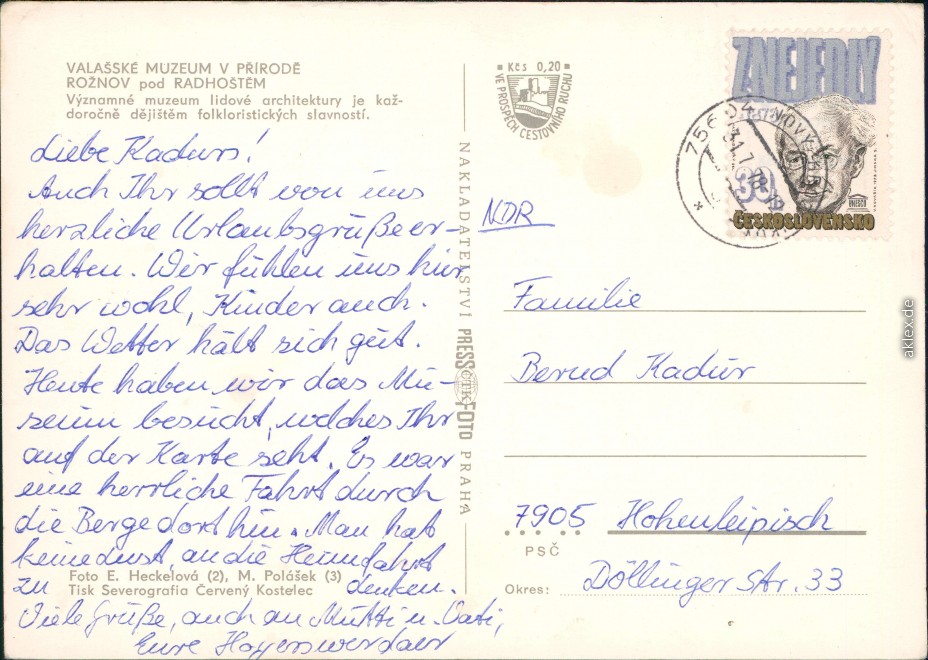 VALAŠSKÉ MUZEUM V PŘÍRODĚ
ROŽNOV pod RADHOŠTĚM
Významné muzeum lidové architektury je kaž-
doročně dějištěm folkloristických slavností.
Liebe Kadurs!
Auch Ihr sollt von uns
herzliche Urlaubsgrüße er-
halten. Wir fühlen uns hier
sehr wohl, Kinder auch.
Das Wetter hält sich gut.
Heute haben wir das Mu-
seum besucht, welches Ihr
auf der Karte seht. Es war
eine herrliche Fahrt durch
die Berge dorthin. Man hat
keine Lust, an die Heimfahrt
zu denken.
Viele Grüße, auch an Mutti u. Vati,
Eure Hoyerswerdaer
Foto E. Heckelová (2), M. Polášek (3)
Tisk Severografia Červený Kostelec
NAKLADATELSTVÍ PRESSFOTO PRAHA
ČTK
Kčs 0,20
VE PROSPĚCH CESTOVNÍHO RUCHU
Z.NEJEDLÝ
30
UNESCO
ČESKOSLOVENSKO
756 04 NOVÝ
NDR
Familie
Bernd Kadur
7905 Hohenleipisch
PSČ
Döllinger Str. 33
Okres:
aklex.de